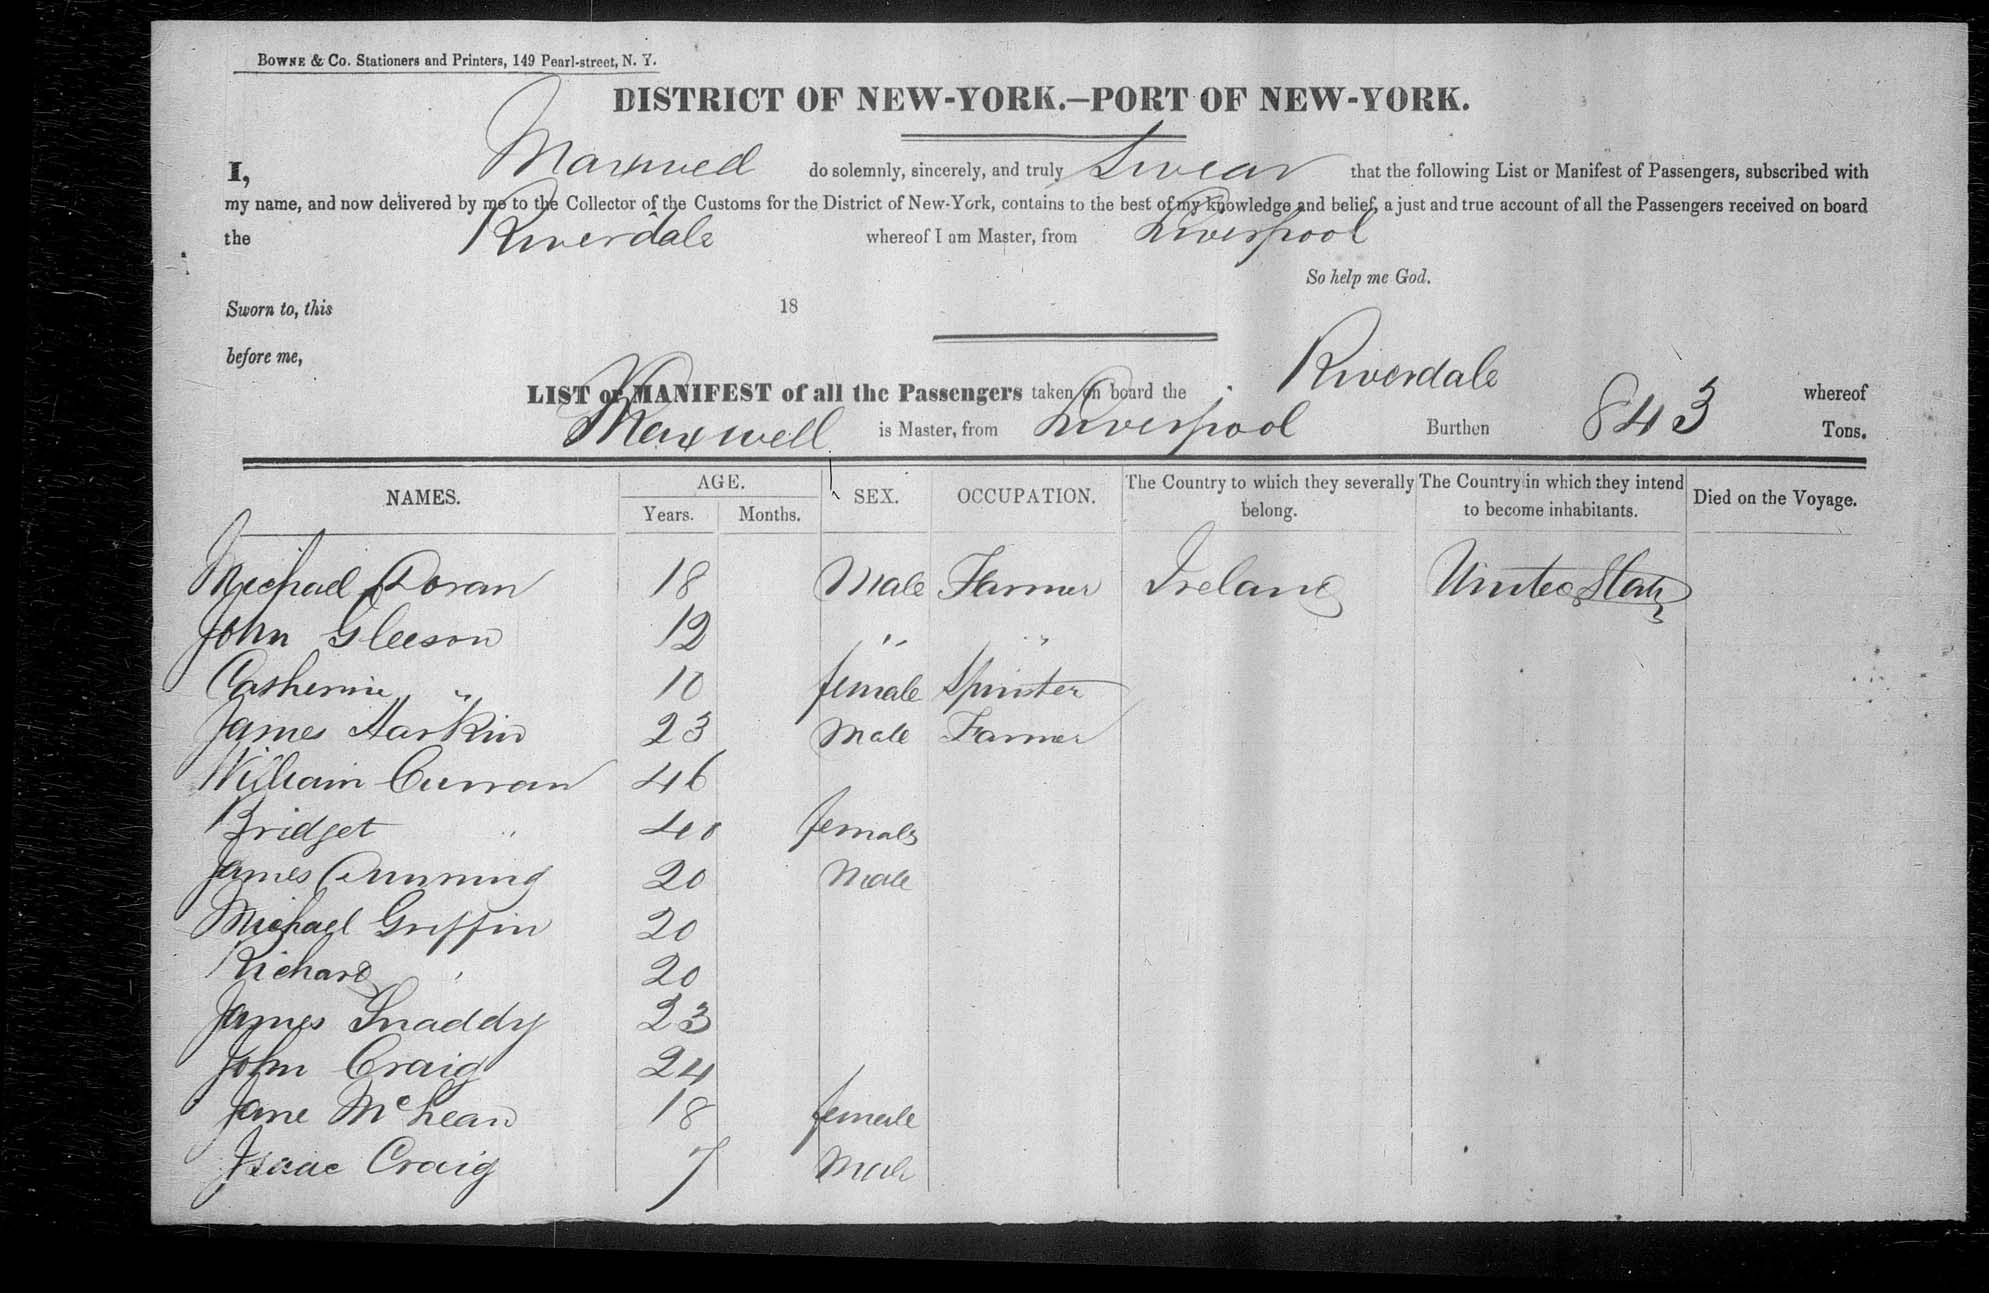 BOWNE & CO. Stationers and Printers, 149 Pearl-street, N. Y.
DISTRICT OF NEW-YORK.—PORT OF NEW-YORK.
I, Maxwell do solemnly, sincerely, and truly Swear that the following List or Manifest of Passengers, subscribed with
my name, and now delivered by me to the Collector of the Customs for the District of New-York, contains to the best of my knowledge and belief, a just and true account of all the Passengers received on board
the Riverdale whereof I am Master, from Liverpool
So help me God.
Sworn to, this 18
before me,
LIST or MANIFEST of all the Passengers taken on board the Riverdale whereof
Maxwell is Master, from Liverpool Burthen 843 Tons.
NAMES. AGE. Years. Months. SEX. OCCUPATION. The Country to which they severally belong. The Country in which they intend to become inhabitants. Died on the Voyage.
Michael Doran 18 Male Farmer Ireland United States
John Gleeson 12 " "
Catherine " 10 female Spinster
James Harkin 23 Male Farmer
William Curran 46
Bridget " 40 female
James Cunning 20 Male
Michael Griffin 20
Richard " 20
James Snaddy 23
John Craig 24
Jane McLean 18 female
Isaac Craig 7 Male